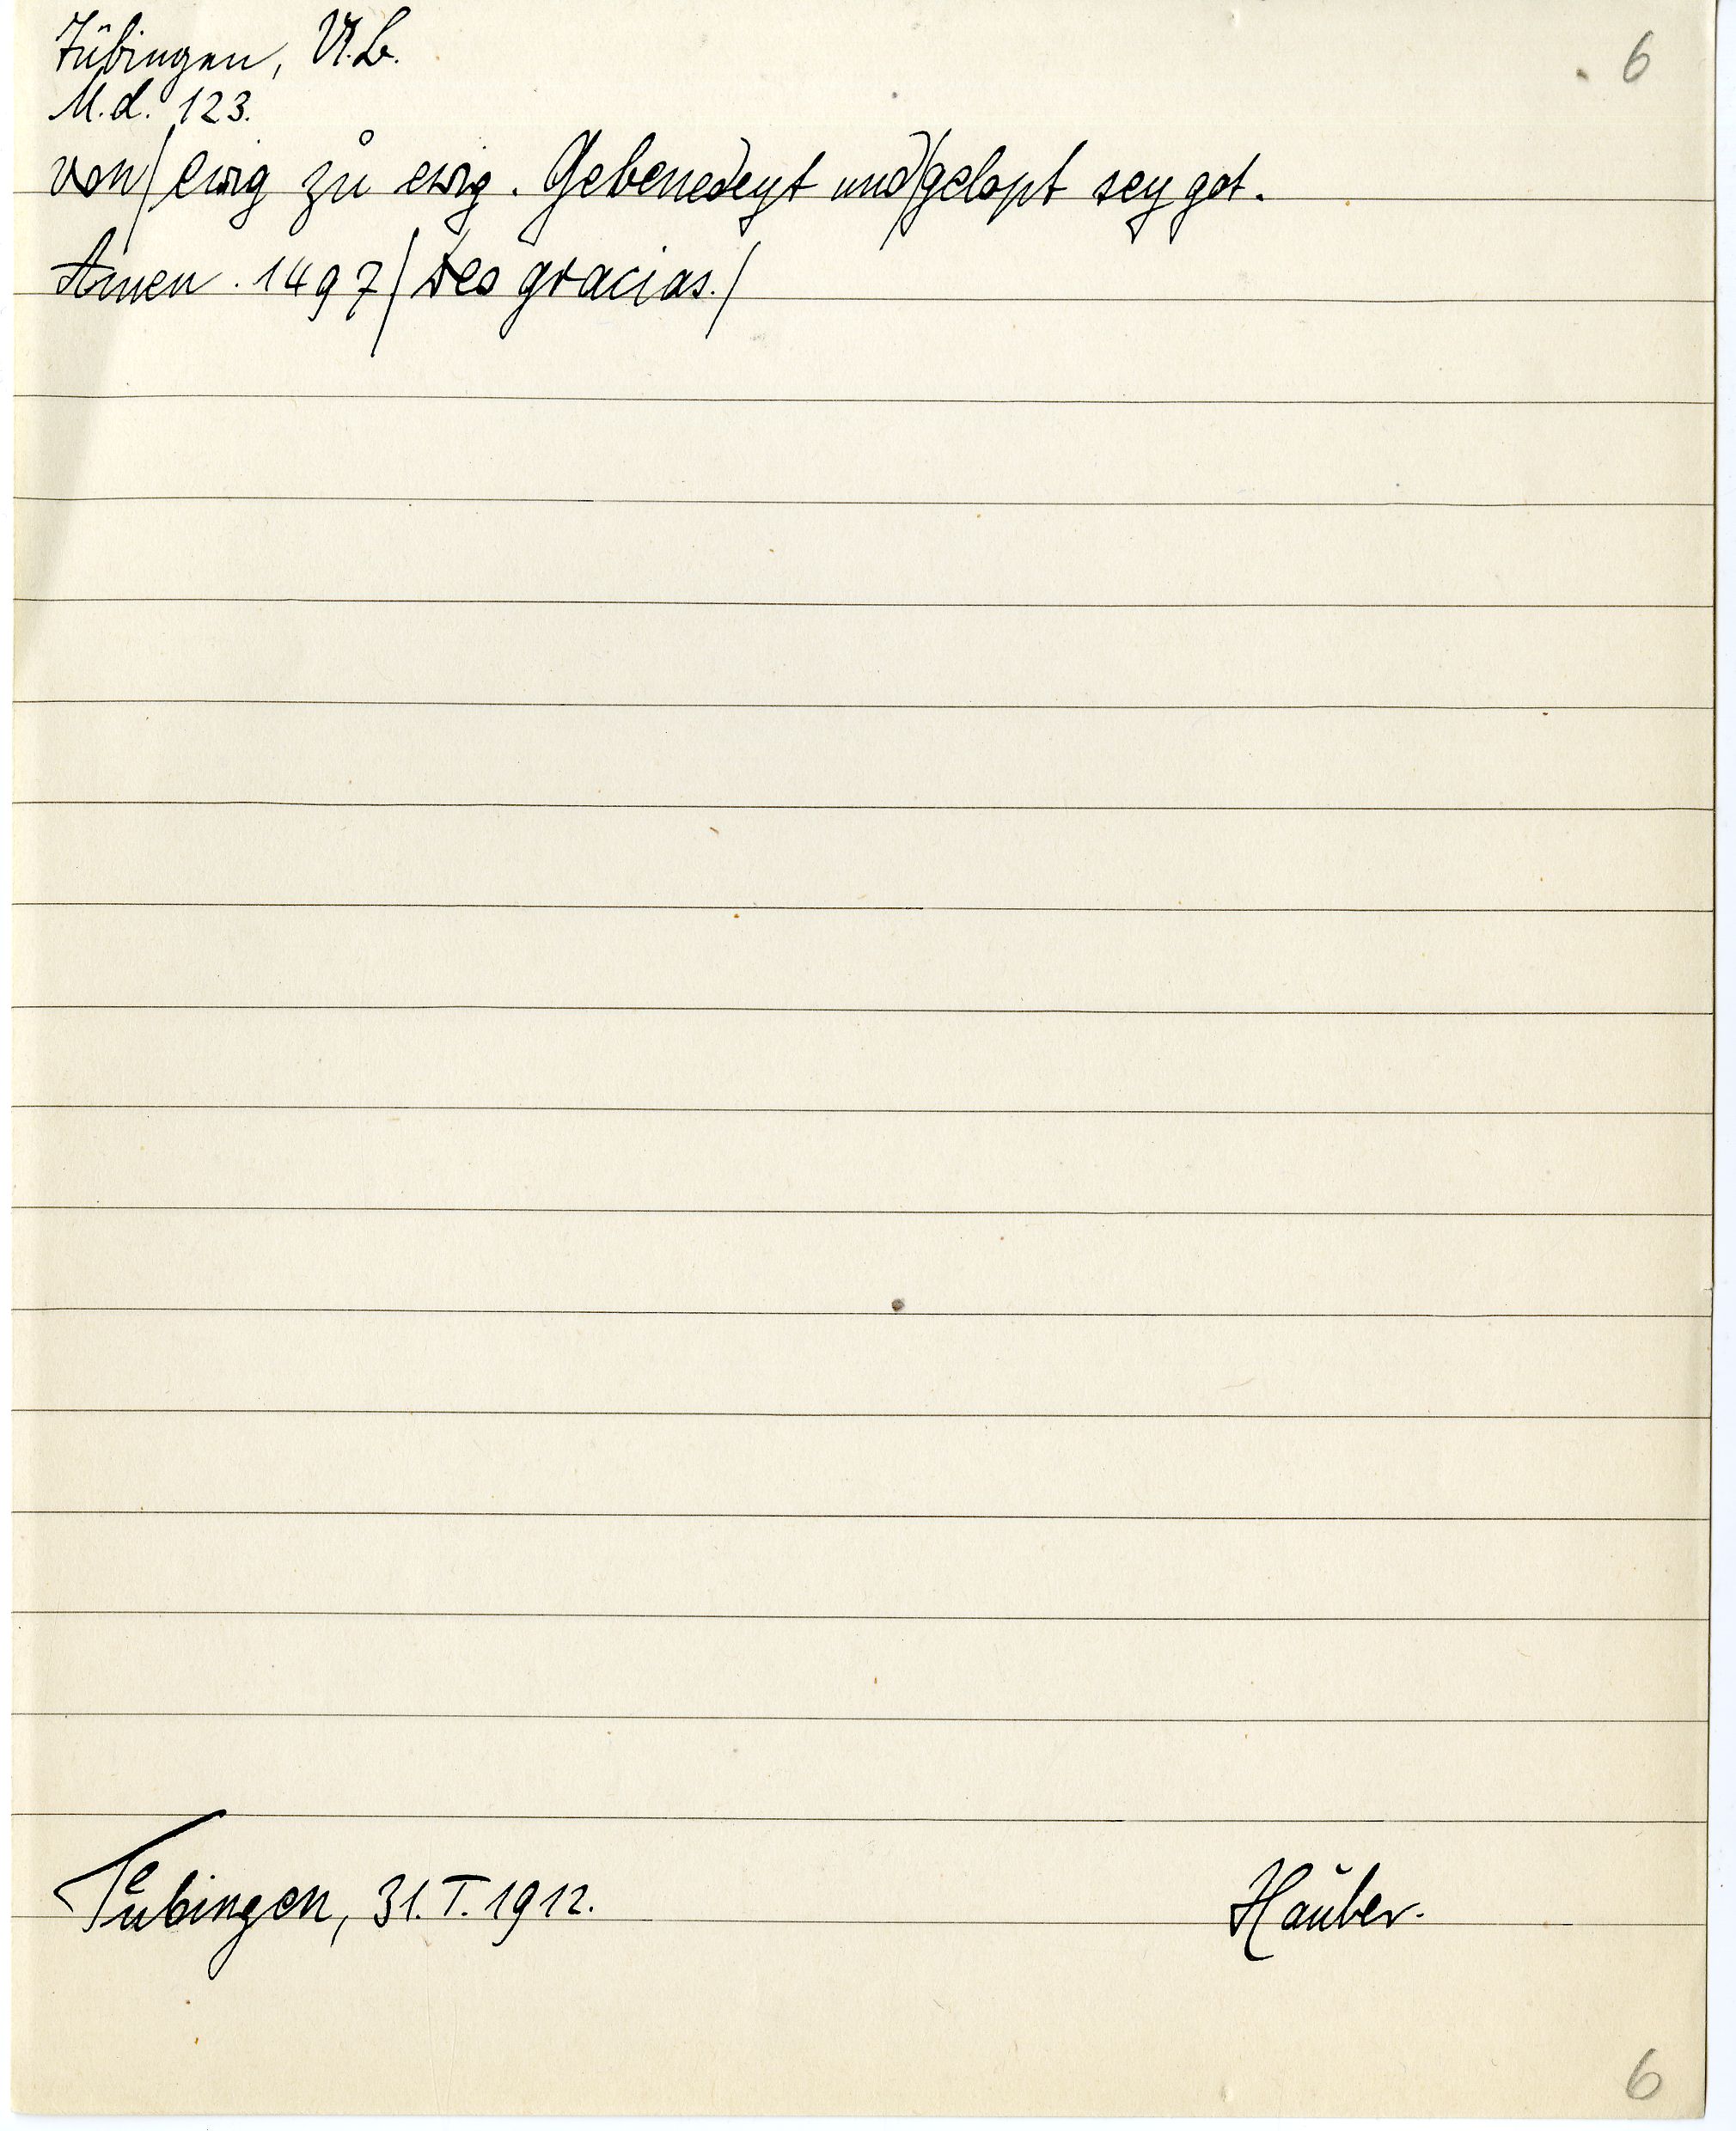 Tübingen, U.B.
6
M.d. 123.
von/ewig zů ewig. Gebenedeyt und/gelopt sey got.
Amen. 1497/deo gracias./
Tuͤbingen, 31.I.1912.
Hauber.
6